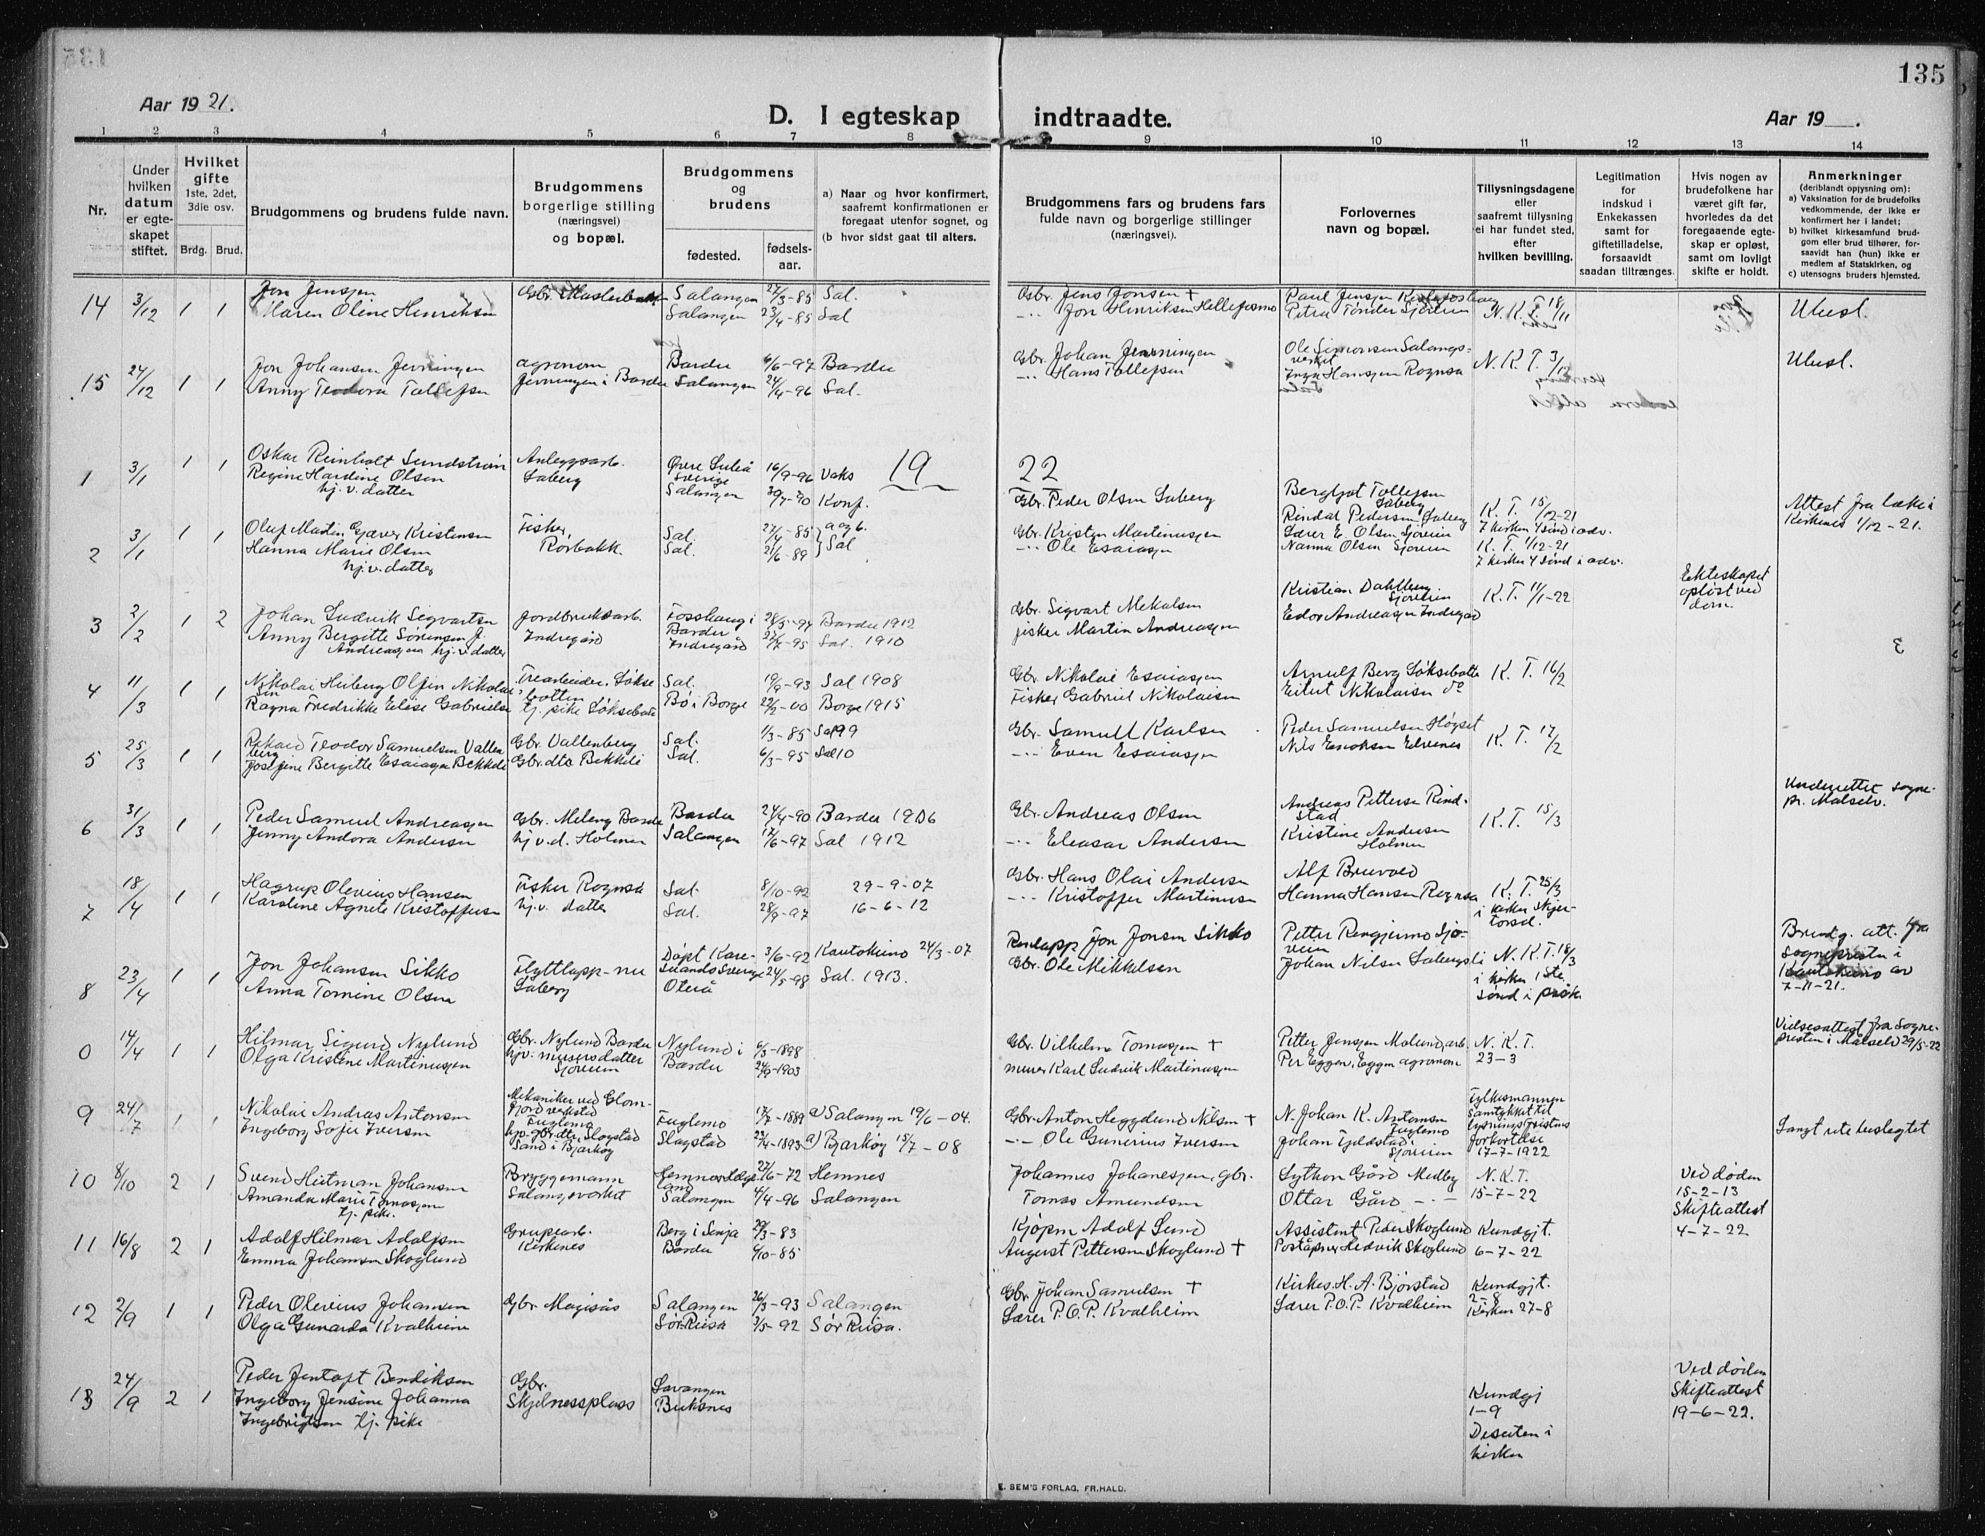 135
Aar 1921.
D. I egteskap indtraadte.
Aar 19 .
1 2 3 4 5 6 7 8 9 10 11 12 13 14
Nr.
Under hvilken datum er egteskapet stiftet.
Hvilket gifte
1ste, 2det, 3die osv.
Brdg. Brud.
Brudgommens og brudens fulde navn.
Brudgommens borgerlige stilling (næringsvei) og bopæl.
Brudgommens og brudens
fødested. fødselsaar.
a) Naar og hvor konfirmert, saafremt konfirmationen er foregaat utenfor sognet, og
(b hvor sidst gaat til alters.
Brudgommens fars og brudens fars fulde navn og borgerlige stillinger (næringsvei).
Forlovernes navn og bopæl.
Tillysningsdagene eller saafremt tillysning ei har fundet sted, efter hvilken bevilling.
Legitimation for indskud i Enkekassen samt for giftetilladelse, forsaavidt saadan tiltrænges.
Hvis nogen av brudefolkene har været gift før, hvorledes da det foregaaende egteskap er opløst, samt om lovligt skifte er holdt.
Anmerkninger
(deriblandt opjysning om):
a) Vaksination for de brudefolks vedkommende, der ikke er konfirmert her i landet;
b) hvilket kirkesamfund brudgom eller brud tilhører, forsaavidt han (hun) ikke er medlem af Statskirken, og
c) utensogns bruders hjemsted.
14 3/12 1 1 Jon Jensen Salangen 27/3-85 Sal. Gbr. Jens Jonsen +
Maren Oline Henriksen Salangen 23/4-85 Sal Jon Henriksen N. K. T. 18/11 Ubesl.
15 24/12 1 1 Jon Johansen Jevningen agronom Bardu 6/6-97 Bardu Gbr. Johan Jevningen Ole Simonsen Salangsverket N. K. T. 3/12 Ubesl.
Anny Teodora Tollefsen Jevningen i Bardu Salangen 24/4-96 Sal. Hans Tollefsen Inga Hansen Rognsa
19 22
1 3/1 1 1 Oskar Reinholt Sundstrøm Anleggsarb. Øvre Luleå Sverige 16/9-96 Vaks Bergljot Tollefsen Saberg
Regine Hardine Olsen hj.v. datter Saberg Salangen 30/7-90 Konf. Gbr. Peder Olsen Saberg Rindal Pedersen Saberg K. T. 15/12-21 Attest fra læke i Kirkenes 1/12-21.
2 3/1 Oluf Martin Gærer Kristensen Fisker, Sal. 27/4-85 a og b. Gbr. Kristen Martinussen Lærer E. Olsen Sjøveien i kirken 4 sønd i adv.
Hanna Marie Olsen hj.v. datter Rørbakk. Sal. 21/6-89 Sal Ole Esaiassen Nanna Olsen Sjøveien K. T. 1/12-21
i kirken 4 sønd i adv.
3 2/2 1 2 Johan Ludvik Sigvartsen Jordbruksarb. Fosshaug i Bardu 28/5-94 Bardu 1912 Gbr. Sigvart Mikalsen Kristian Dahlberg Sjøveien K. T. 11/1-22 Ekteskapet opløst ved dom.
Anny Bergitte Sørensen f. Andreassen hj.v. datter Indregård Indregård 27/7-95 Sal. 1910 fisker Martin Andreassen Edor Andreassen Indregård
4 11/3 1 1 Nikolai Hiberg Olsen Nikolaisen Trearbeider. Løksebotten Sal. 19/9-93 Sal 1908 Gbr. Nikolai Esaiassen Arnulf Berg Løksebotn K. T. 16/2
Ragna Fredrikke Elise Gabrielsen tj. pike Løksebotn Bø i Borge 22/2-00 Borge 1915 Fisker Gabriel Nikolaisen Eilert Nikolaisen do
5 25/3 1 1 Rikard Teodor Samuelsen Vallenberg Gbr. Vallenberg Sal. 1/3-85 Sal 99 Gbr. Samuel Karlsen Peder Samuelsen Høgset K. T. 17/2
Josefine Bergitte Esaiassen Bekkeli Gbr. dtr Bekkeli Sal. 6/3-95 Sal 10 Even Esaiassen Nils Enoksen Elvenes
6 31/3 1 1 Peder Samuel Andreassen Gbr. Meleng Bardu Bardu 24/4-90 Bardu 1906 Gbr. Andreas Olsen Andreas Petterse Rindstad K. T. 15/3 Underrettet sognepr. Målselv.
Jenny Andora Andersen hj v. d. Holmen Salangen 17/6-97 Sal 1912 Eleasar Andersen Kristine Andersen Holmen
7 18/4 1 1 Hagrup Olevius Hansen Fisker Rognsa Sal. 8/10-92 29-9-07 Gbr. Hans Olai Andersen Alf Bruvold K. T. 25/3
Karoline Agnete Kristoffersen hj.v. datter Sal. 28/9-97 16-6-12 Kristoffer Martinussen Hanna Hansen Rognsa i kirken Skjærtorsd.
8 23/4 1 1 Jon Johansen Sikko Flyttlapp-nu Døpt Karesuando Sverige 3/6-92 Kautokeino 24/3-07 Reinlapp Jon Jonsen Sikko Petter Rengjermo Sjøveien N. K. T. 18/3 Brudg. att. fra Sognepresten i Kautokeino av 7-11-21.
Anna Tomine Olsen Saberg Oterå 24/5-98 Sal. 1913. Gbr. Ole Mikkelsen Johan Nilsen Sabergsli i kirken 1ste sønd i påsk.
0 14/4 1 1 Hilmar Sigurd Nylund Gbr. Nylund Bardu Nylund i Bardu 6/3-1898 Gbr. Vilhelm Tomassen + Petter Jenssen Molund arb. N. K. T. Vielsesattest fra Sognepresten i Målselv 29/5-22
Olga Kristine Martinussen hjv. murersdatter Sjøveien 24/9-1903 murer Karl Ludvik Martinussen Per Eggen, Eggen agronom 23-3
9 24/7 1 1 Nikolai Andras Antonsen Mekaniker ved Glomfjord verksted Fuglemo Fuglemo 17/7-1889 a) Salangen 19/6-04. Gbr. Anton Heggelund Nilsen + N. Johan K. Antonsen Fuglemo Fylkesmannen samtykket til lysningsfristens forkortelse 17-7-1922
Ingeborg Sofie Iversen hjv. gbrdtr. Slagstad Sand i Bjarkøy Slagstad 22/4-1893 a) Bjarkøy 15/7-08 Ole Gunerius Iversen Johan Fjeldstad, Sjøveien Langt ute beslegtet
10 8/10 2 1 Svend Heitman Johansen Bryggemann Hemnes Helgeland 27/6-72 Hemnes Johannes Johanessen, gbr. Lython Gård Medby N. K. T. Ved døden 15-2-13
Amanda Marie Tomassen tj. pike. Salangsverket Salangen 4/4-96 Salangen Tomas Amundsen Ottar Gård 15-7-22 Skifteattest 4-7-22.
11 16/8 2 1 Adolf Hilmar Adolfsen Grubearb. Berg i Senja 29/3-83 Kjøpm Adolf Lund Assistent Peder Skoglund Kundgjt.
Emma Johansen Skoglund Kirkenes Bardu 6/10-85 August Pettersen Skoglund + Poståpner Hedvik Skoglund 6-7-22
12 2/9 1 1 Peder Olevius Johansen Gbr. Magisås Salangen 26/3-93 Salangen Gbr. Johan Samuelsen + Kirkes. H. A. Bjørstad Kundgjt. 2-8
Olga Gunarda Kvalheim Sør Reisa 3/5-92 Sør Reisa. Lærer P. O. P. Kvalheim Lærer P. O. P. Kvalheim Kirken 27-8
13 24/9 2 1 Peder Jentoft Bendiksen Gbr. Lavangen Kundgj 1-9 Ved døden
Ingeborg Jensine Johanna Ingebrigtsen tj. pike Skjelnesplass Buksnes Desuten i kirken Skifteattest 19-6-22.
E. SEM'S FORLAG, FR.HALD.